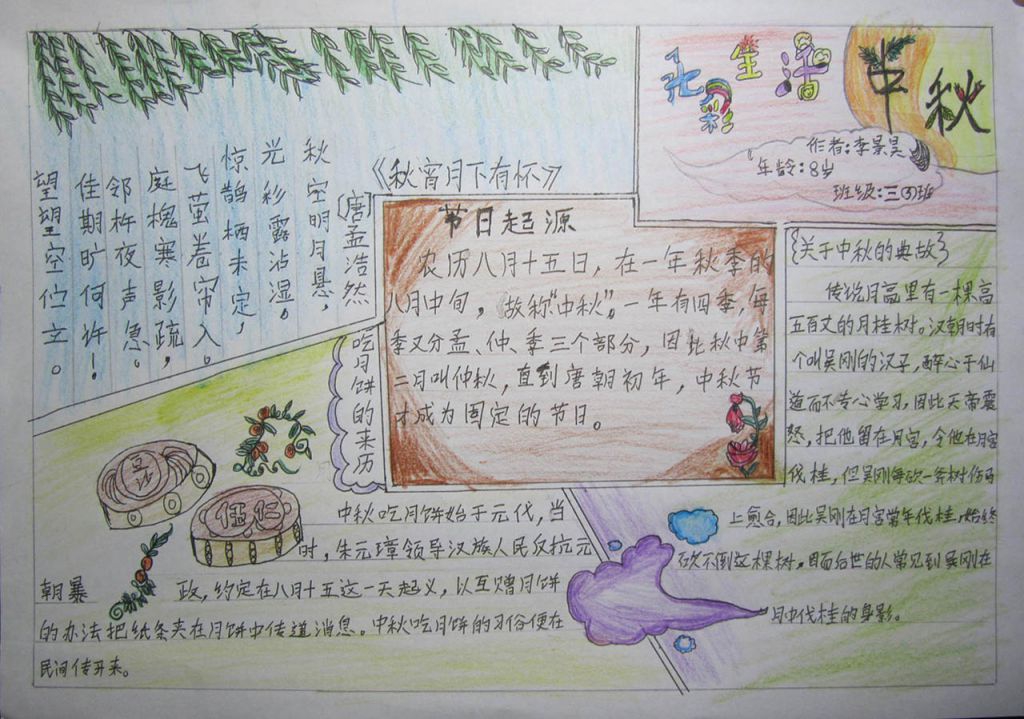 九彩生活
中秋
作者:李景昊
年龄:8岁
班级:三③班
《秋宵月下有怀》
〔唐〕孟浩然
秋空明月悬,
光彩露沾湿。
惊鹊栖未定,
飞萤卷帘入。
庭槐寒影疏,
邻杵夜声急。
佳期旷何许!
望望空伫立。
节日起源
农历八月十五日,在一年秋季的
八月中旬,故称“中秋”。一年有四季,每
季又分孟、仲、季三个部分,因此秋中第
二月叫仲秋,直到唐朝初年,中秋节
才成为固定的节日。
{关于中秋的典故}
传说月宫里有一棵高
五百丈的月桂树。汉朝时有
个叫吴刚的汉子,醉心于仙
道而不专心学习,因此天帝震
怒,把他留在月宫,令他在月宫
伐桂,但吴刚每砍一斧树伤马
上愈合,因此吴刚在月宫常年伐桂,始终
砍不倒这棵树,因而后世的人常见到吴刚在
月中伐桂的身影。
吃月饼的来历
豆沙
伍仁
中秋吃月饼始于元代,当
时,朱元璋领导汉族人民反抗元
朝暴政,约定在八月十五这一天起义,以互赠月饼
的办法把纸条夹在月饼中传递消息。中秋吃月饼的习俗便在
民间传开来。